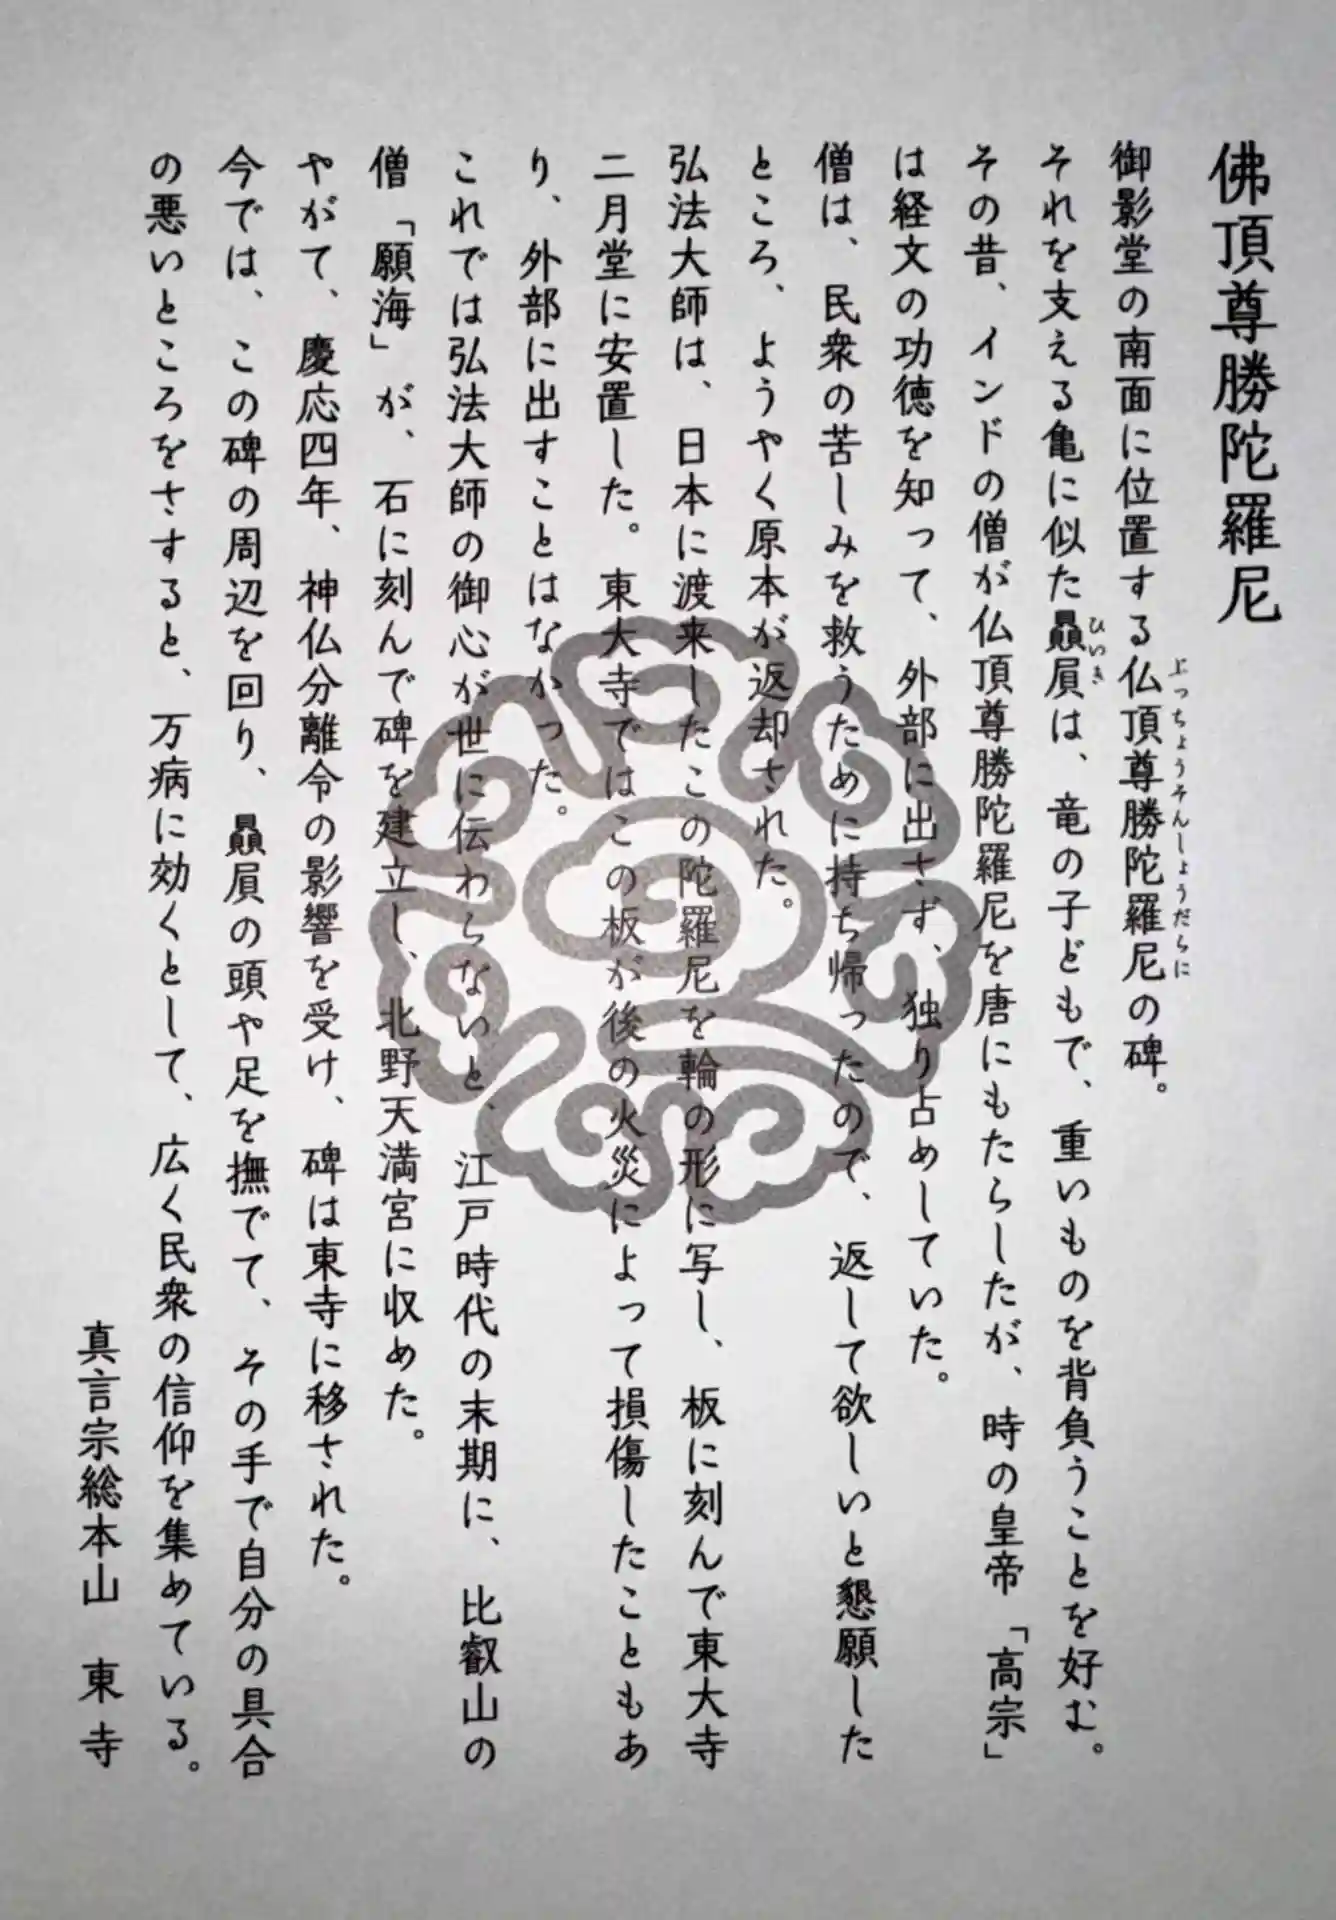 佛頂尊勝陀羅尼
御影堂の南面に位置する仏頂尊勝陀羅尼の碑。
ぶっちょうそんしょうだらに
それを支える亀に似た贔屓は、竜の子どもで、重いものを背負うことを好む。
ひいき
その昔、インドの僧が仏頂尊勝陀羅尼を唐にもたらしたが、時の皇帝「高宗」
は経文の功徳を知って、外部に出さず、独り占めしていた。
僧は、民衆の苦しみを救うために持ち帰ったので、返して欲しいと懇願した
ところ、ようやく原本が返却された。
弘法大師は、日本に渡来したこの陀羅尼を輪の形に写し、板に刻んで東大寺
二月堂に安置した。東大寺ではこの板が後の火災によって損傷したこともあ
り、外部に出すことはなかった。
これでは弘法大師の御心が世に伝わらないと、江戸時代の末期に、比叡山の
僧「願海」が、石に刻んで碑を建立し、北野天満宮に収めた。
やがて、慶応四年、神仏分離令の影響を受け、碑は東寺に移された。
今では、この碑の周辺を回り、贔屓の頭や足を撫でて、その手で自分の具合
の悪いところをさすると、万病に効くとして、広く民衆の信仰を集めている。
真言宗総本山　東寺